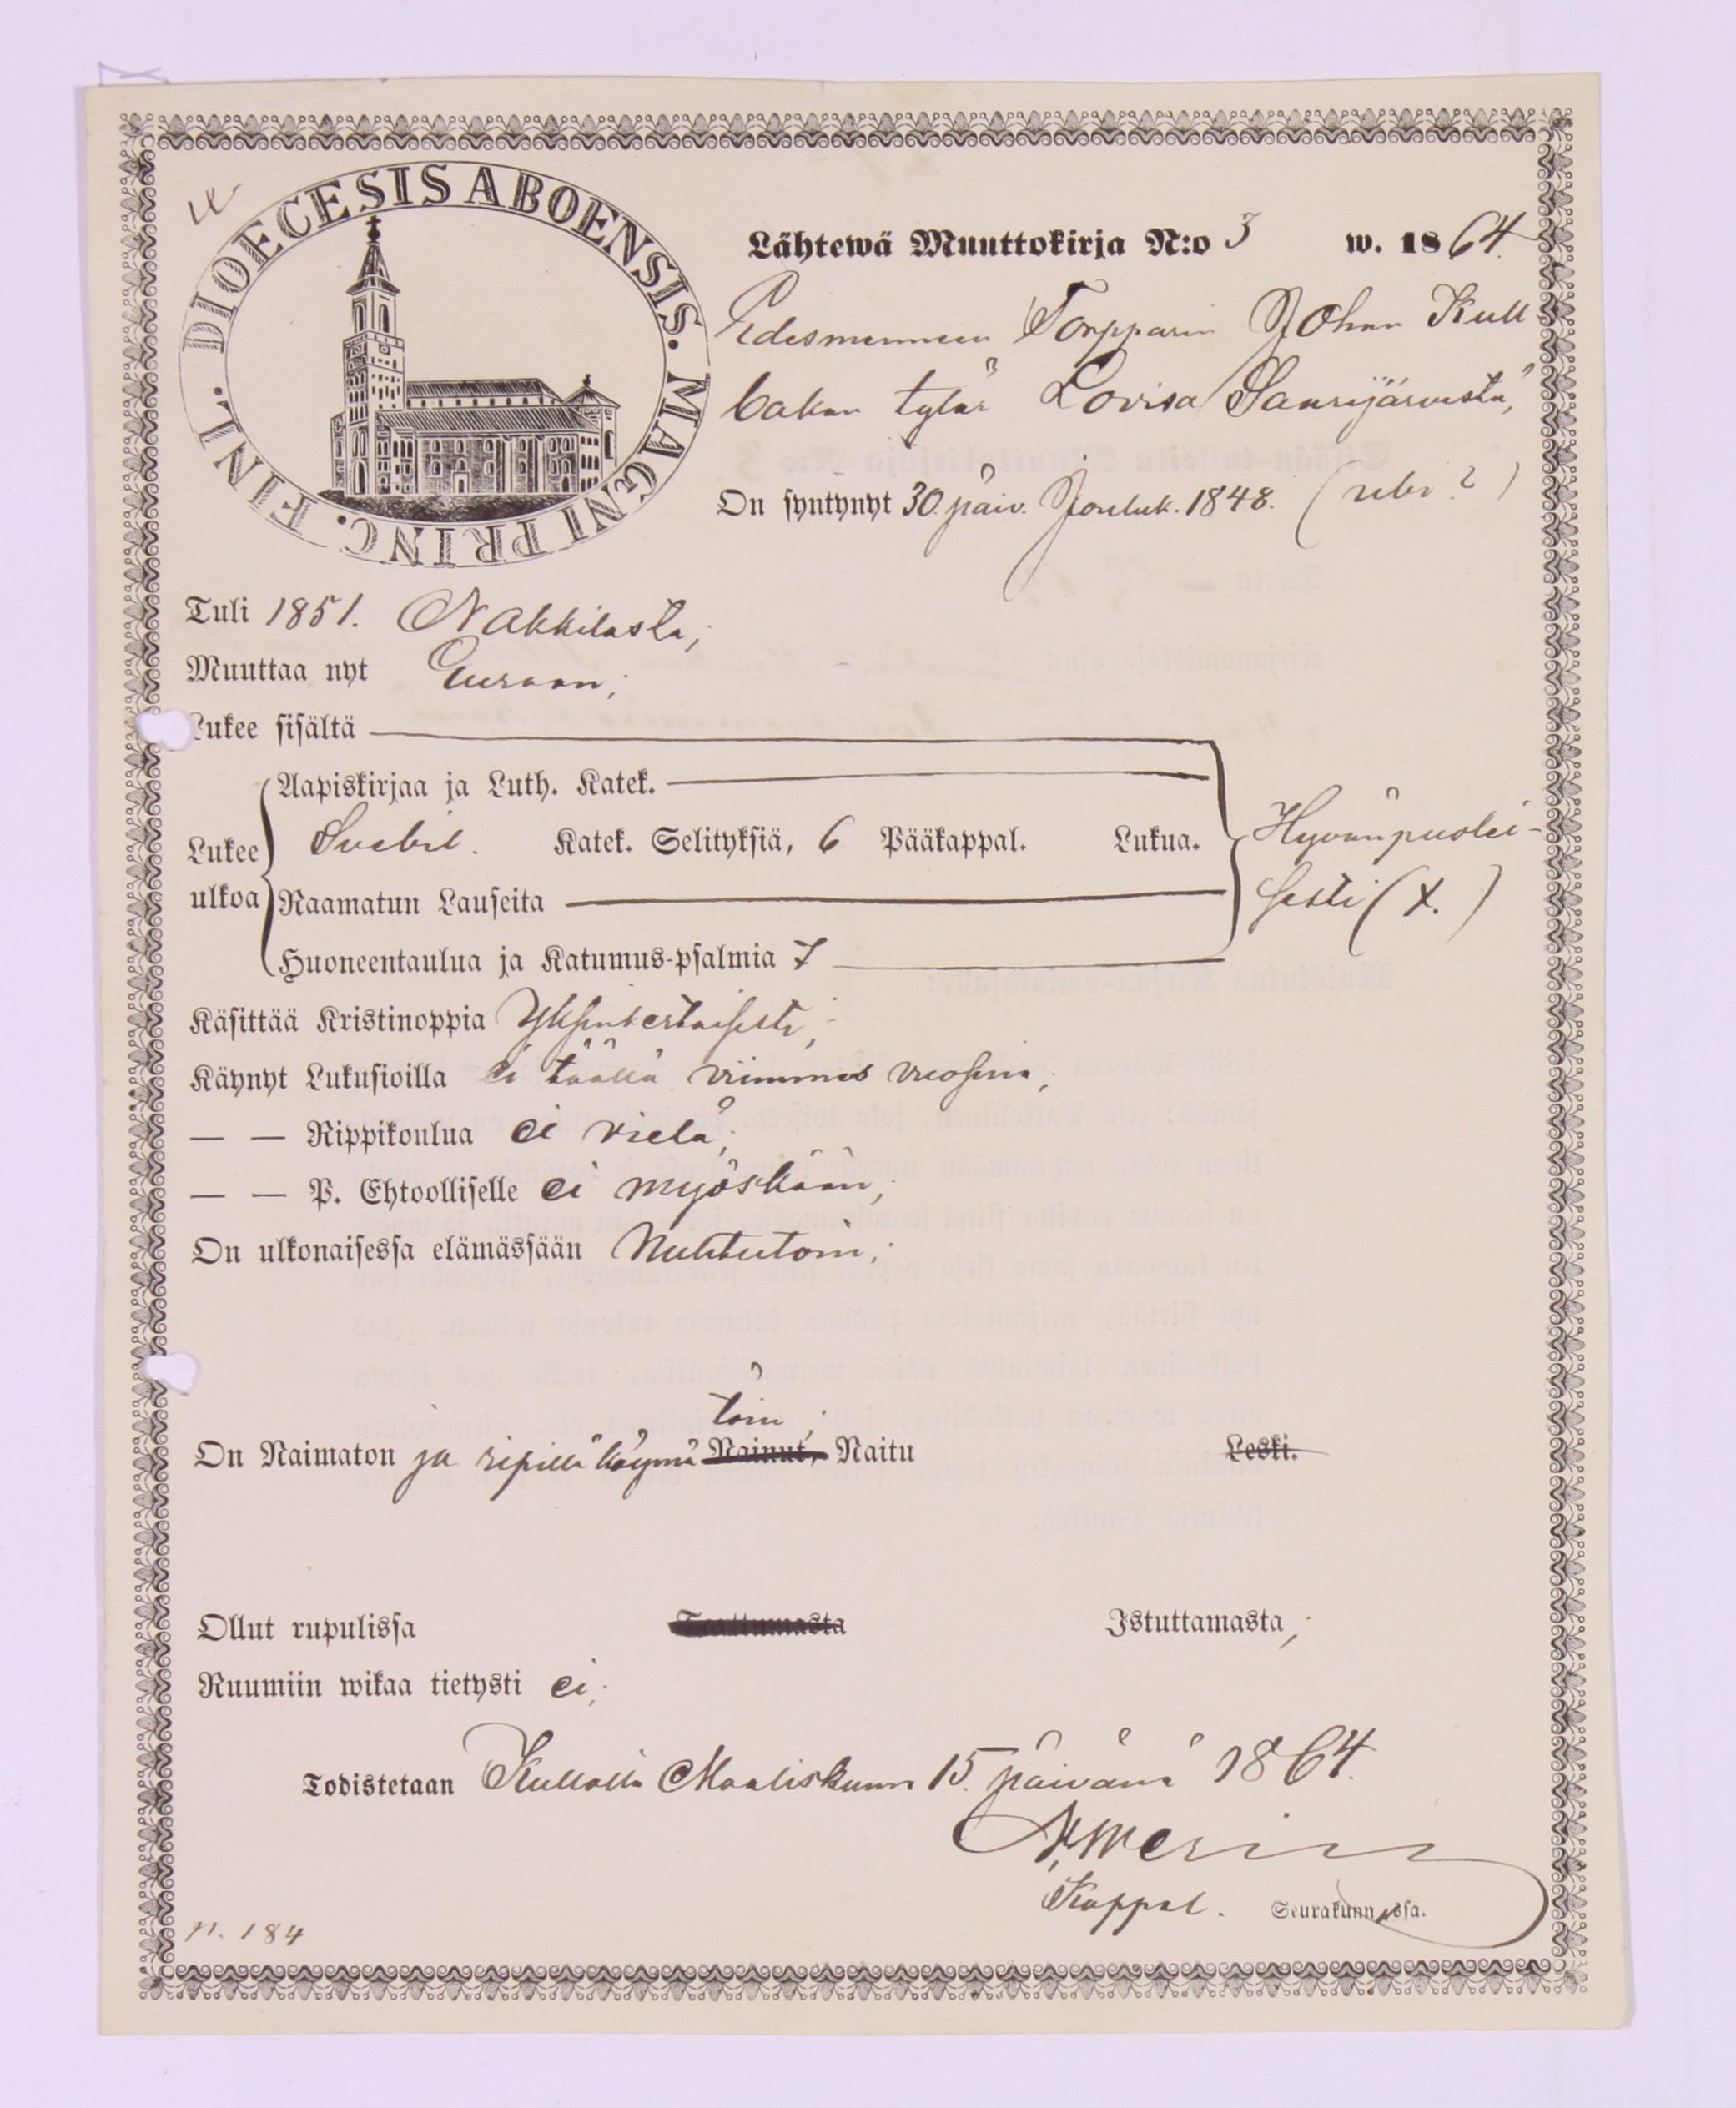 DIOECESIS ABOENSIS. MAGNI PRINC. FINL.
Lähtewä Muuttokirja N:o 3 w. 1864.
Edesmenneen Torpparin Johan Kull
bakan tytär Lovisa Saarijärvestä,
On syntynyt 30. päiv. Jouluk. 1848.
Tuli 1851. Nakkilasta;
Muuttaa nyt Euraan;
Lukee sisältä
Aapiskirjaa ja Luth. Katek.
Lukee ulkoa Svebil. Katek. Selityksiä, 6 Pääkappal. Lukua. Hyvänpuolei-
Raamatun Lauseita sesti (X.)
Huoneentaulua ja Katumus-psalmia 7
Käsittää Kristinoppia Yksinkertaisesti;
Käynyt Lukusioilla ei täällä viimmes vuosina;
— — Rippikoulua ei vielä;
— — P. Ehtoolliselle ei myöskään;
On ulkonaisessa elämässään Nuhteetoin;
toin;
On Naimaton ja ripillä käymä Nainut, Naitu Leski.
Ollut rupulissa Taattumasta Istuttamasta;
Ruumiin wikaa tietysti ei;
Todistetaan Kullalla Maaliskuun 15. päivänä 1864.
Kappal. Seurakunnassa.
p. 184